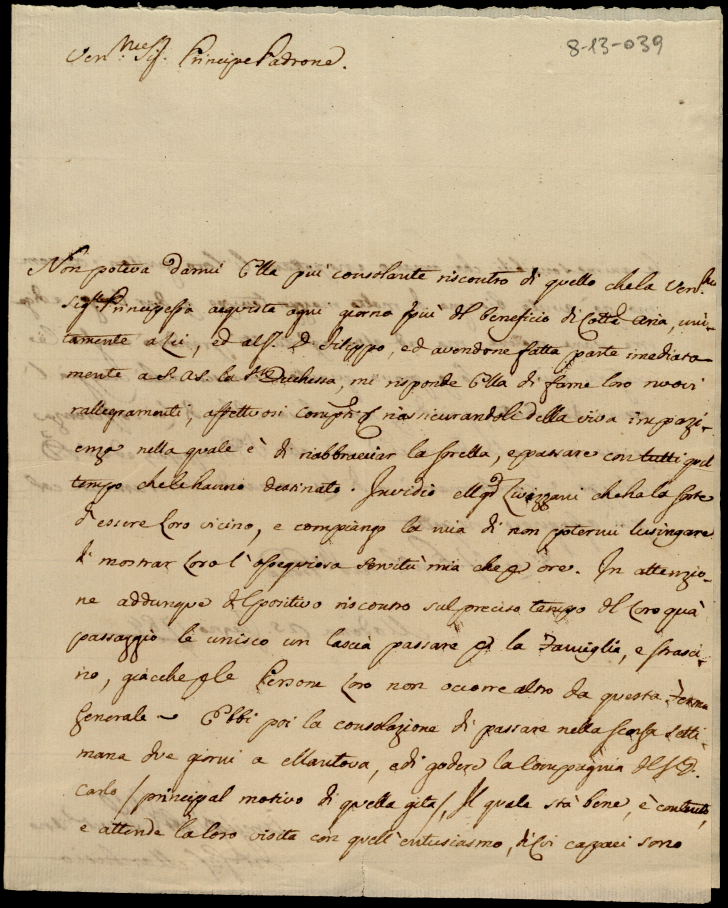 8-13-039
Ven.mo Sig. Principe Padrone.
Non poteva darmi Ella più consolante riscontro di quello che la Ven.
Sig. Principessa acquista ogni giorno più del beneficio di Cotta Aria, uni-
tamente a Lei, ed al S. D. Filippo, ed avendone fatta parte imediata-
mente a S. A. S. la S. Duchessa, mi risponde Ella di farne Loro nuovi
rallegramenti, affettuosi riassicurandoli della viva impazi-
enza nella quale è di riabbracciar la sorella, e passare con tutti quel
tempo che le hanno destinato. Invidio Livizzani che ha la sorte
d'essere Loro vicino, e compiango la mia di non potermi lusingare
di mostrar Loro l'ossequiosa servitù mia che p ore. In attenzio-
ne addunque del positivo riscontro sul preciso tempo del Loro quà
passaggio le unisco un lascia passare p la Famiglia, e strasci-
no, giacche p le Persone Loro non occorre altro da questa Ferma
Generale ~ Ebbi poi la consolazione di passare nella scorsa setti-
mana due giorni a Mantova, e di godere la Compagnia del S. D.
Carlo /principal motivo di quella gita/, Il quale stà bene, è contento,
e attende la loro visita con quell'entusiasmo, di cui capaci sono